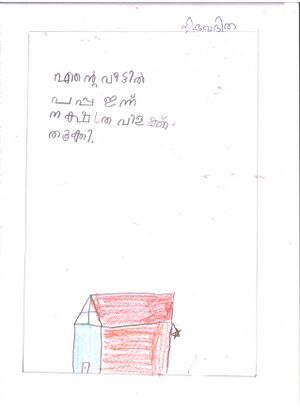 നിവേദിത
എന്റെ വീട്ടിൽ
പപ്പ ഇന്ന്
നക്ഷത്ര വിളക്ക്
തൂക്കി.